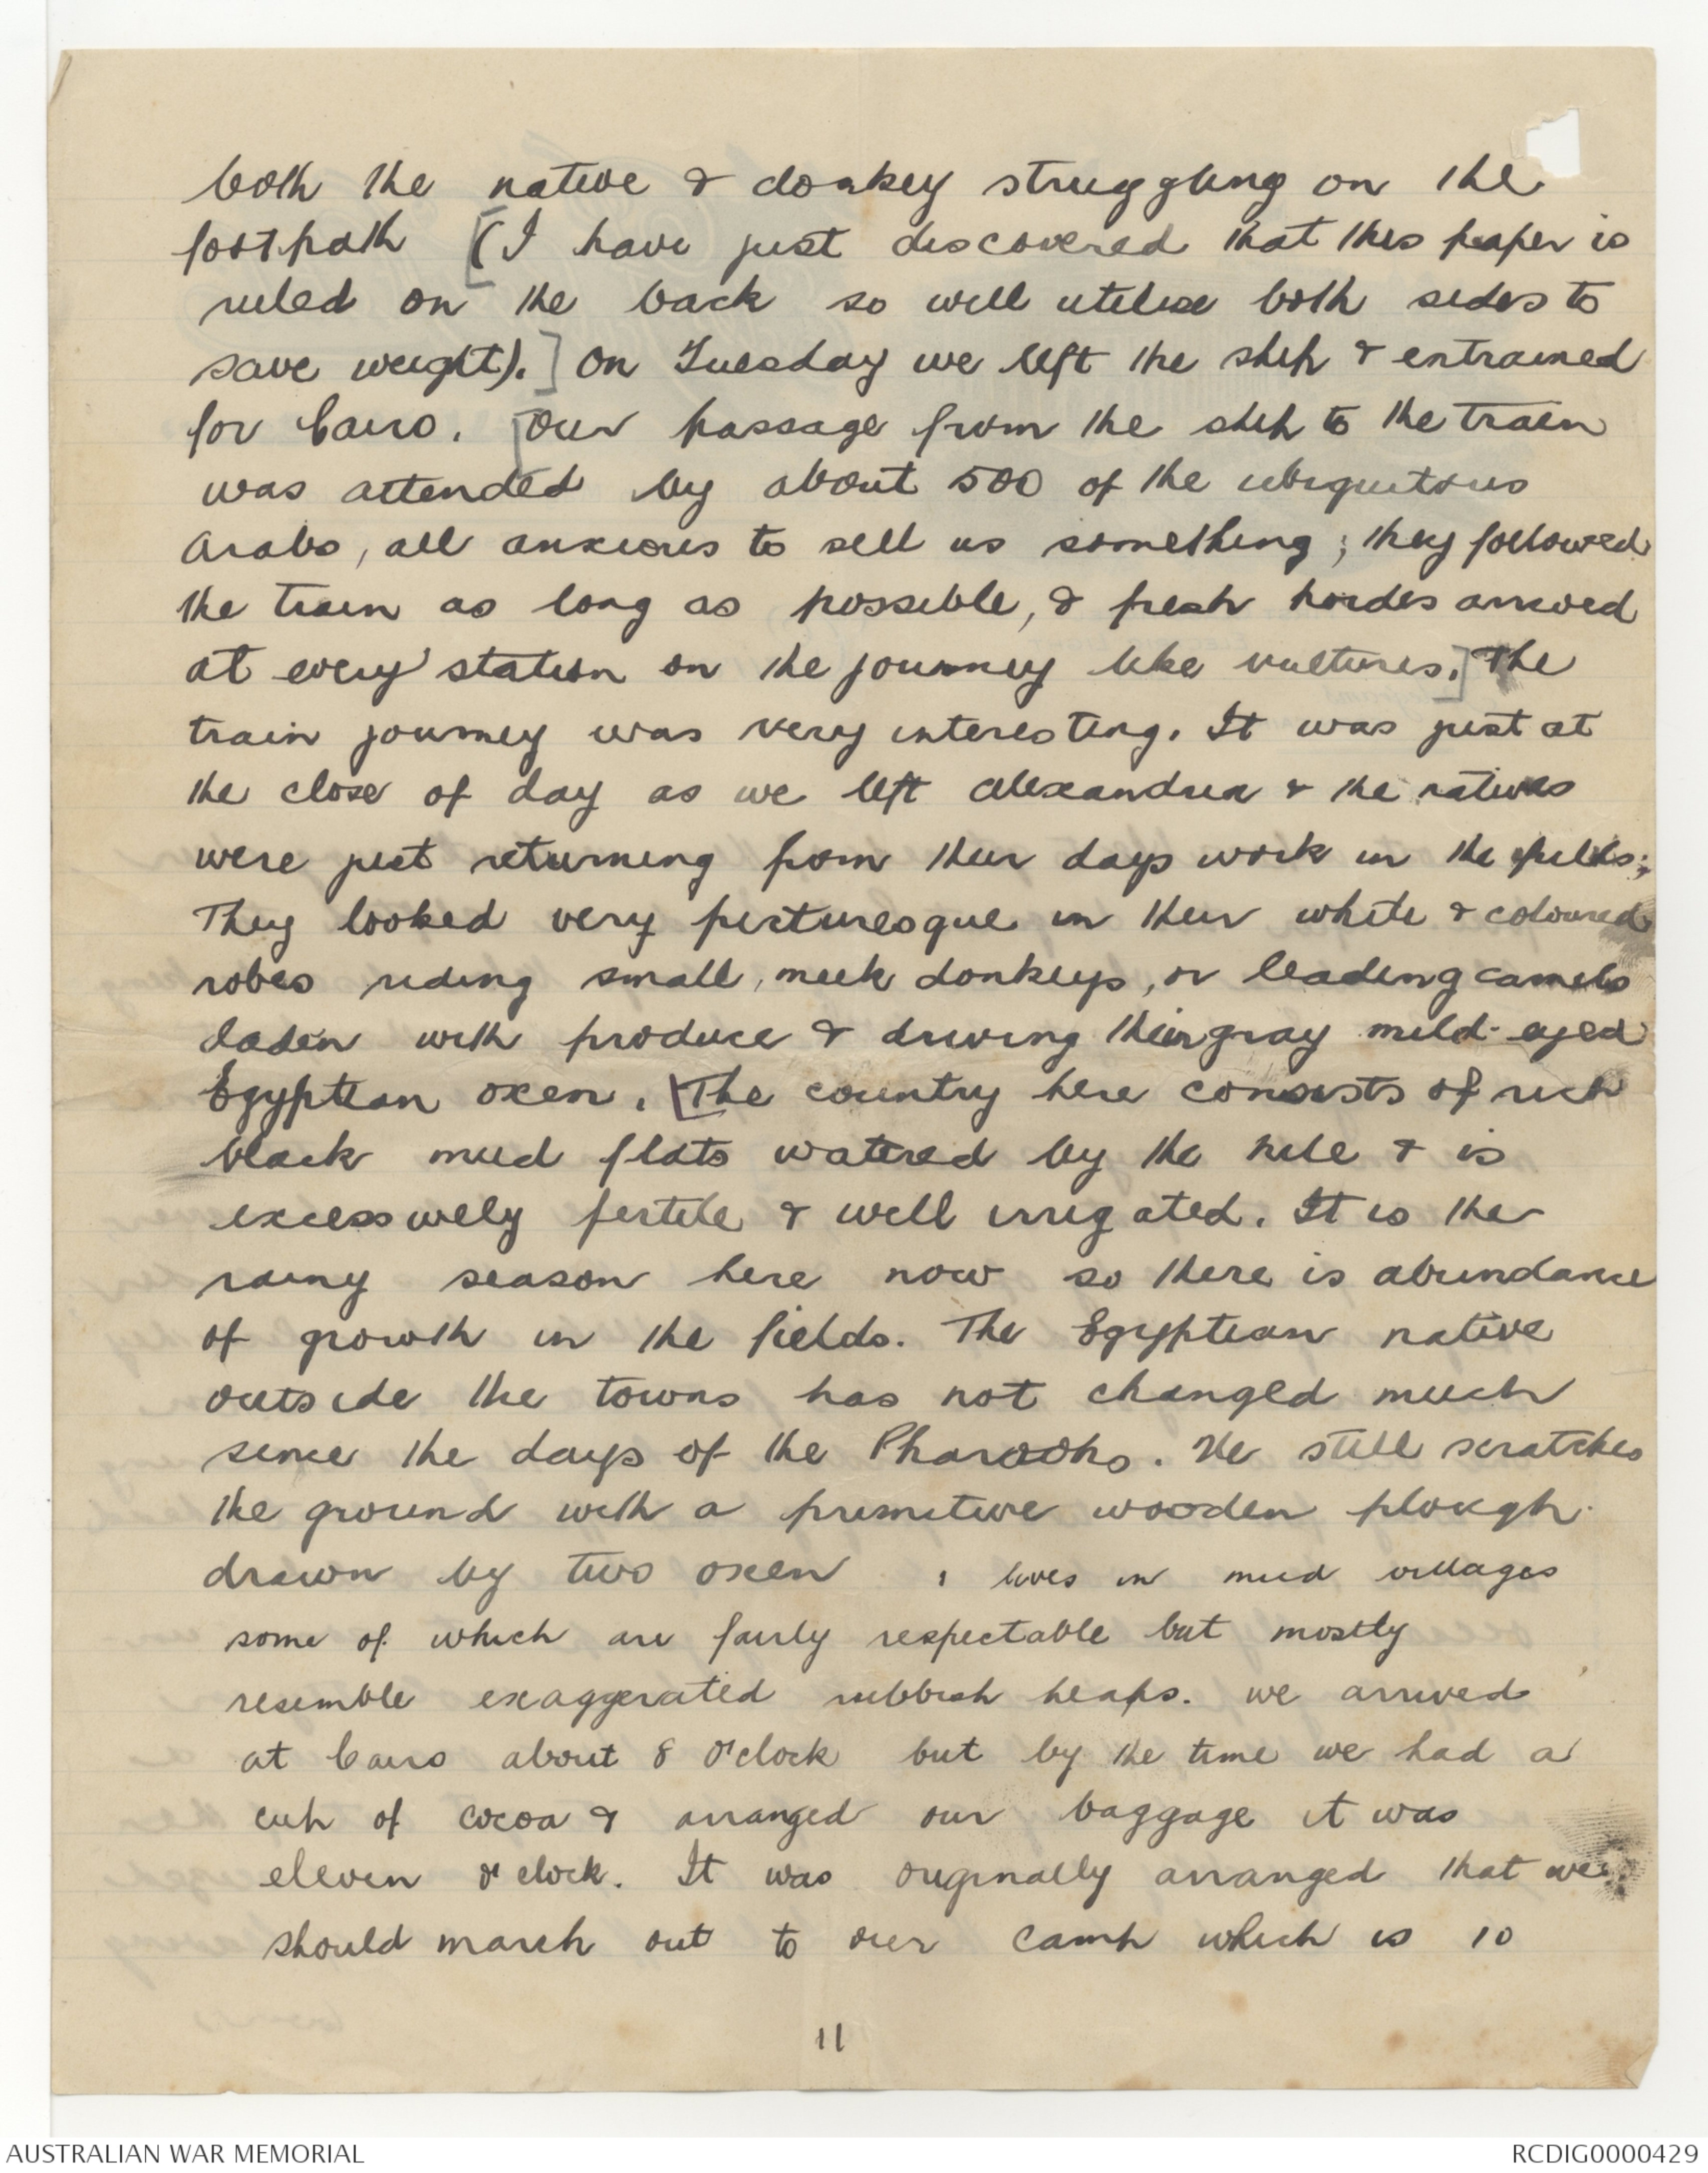 both the native & donkey struggling on the
footpath [(I have just discovered that this paper is
ruled on the back so will utilise both sides to
save weight).] On Tuesday we left the ship & entrained
for Cairo. [Our passage from the ship to the train
was attended by about 500 of the ubiquitous
Arabs, all anxious to sell us something; they followed
the train as long as possible, & fresh hordes arrived
at every station on the journey like vultures.] The
train journey was very interesting. It was just at
the close of day as we left Alexandria & the natives
were just returning from their days work in the fields;
They looked very picturesque in their white & coloured
robes riding small, meek donkeys, or leading camels
laden with produce & driving their gray mild-eyed
Egyptian oxen. [The country here consists of rich
black mud flats watered by the Nile & is
excessively fertile & well irrigated. It is the
rainy season here now so there is abundance
of growth in the fields. The Egyptian native
outside the towns has not changed much
since the days of the Pharaohs. He still scratches
the ground with a primitive wooden plough
drawn by two oxen & lives in mud villages
some of which are fairly respectable but mostly
resemble exaggerated rubbish heaps. We arrived
at Cairo about 8 O'clock but by the time we had a
cup of cocoa & arranged our baggage it was
eleven o'clock. It was originally arranged that we
should march out to our camp which is 10
11
AUSTRALIAN WAR MEMORIAL
RCDIG0000429